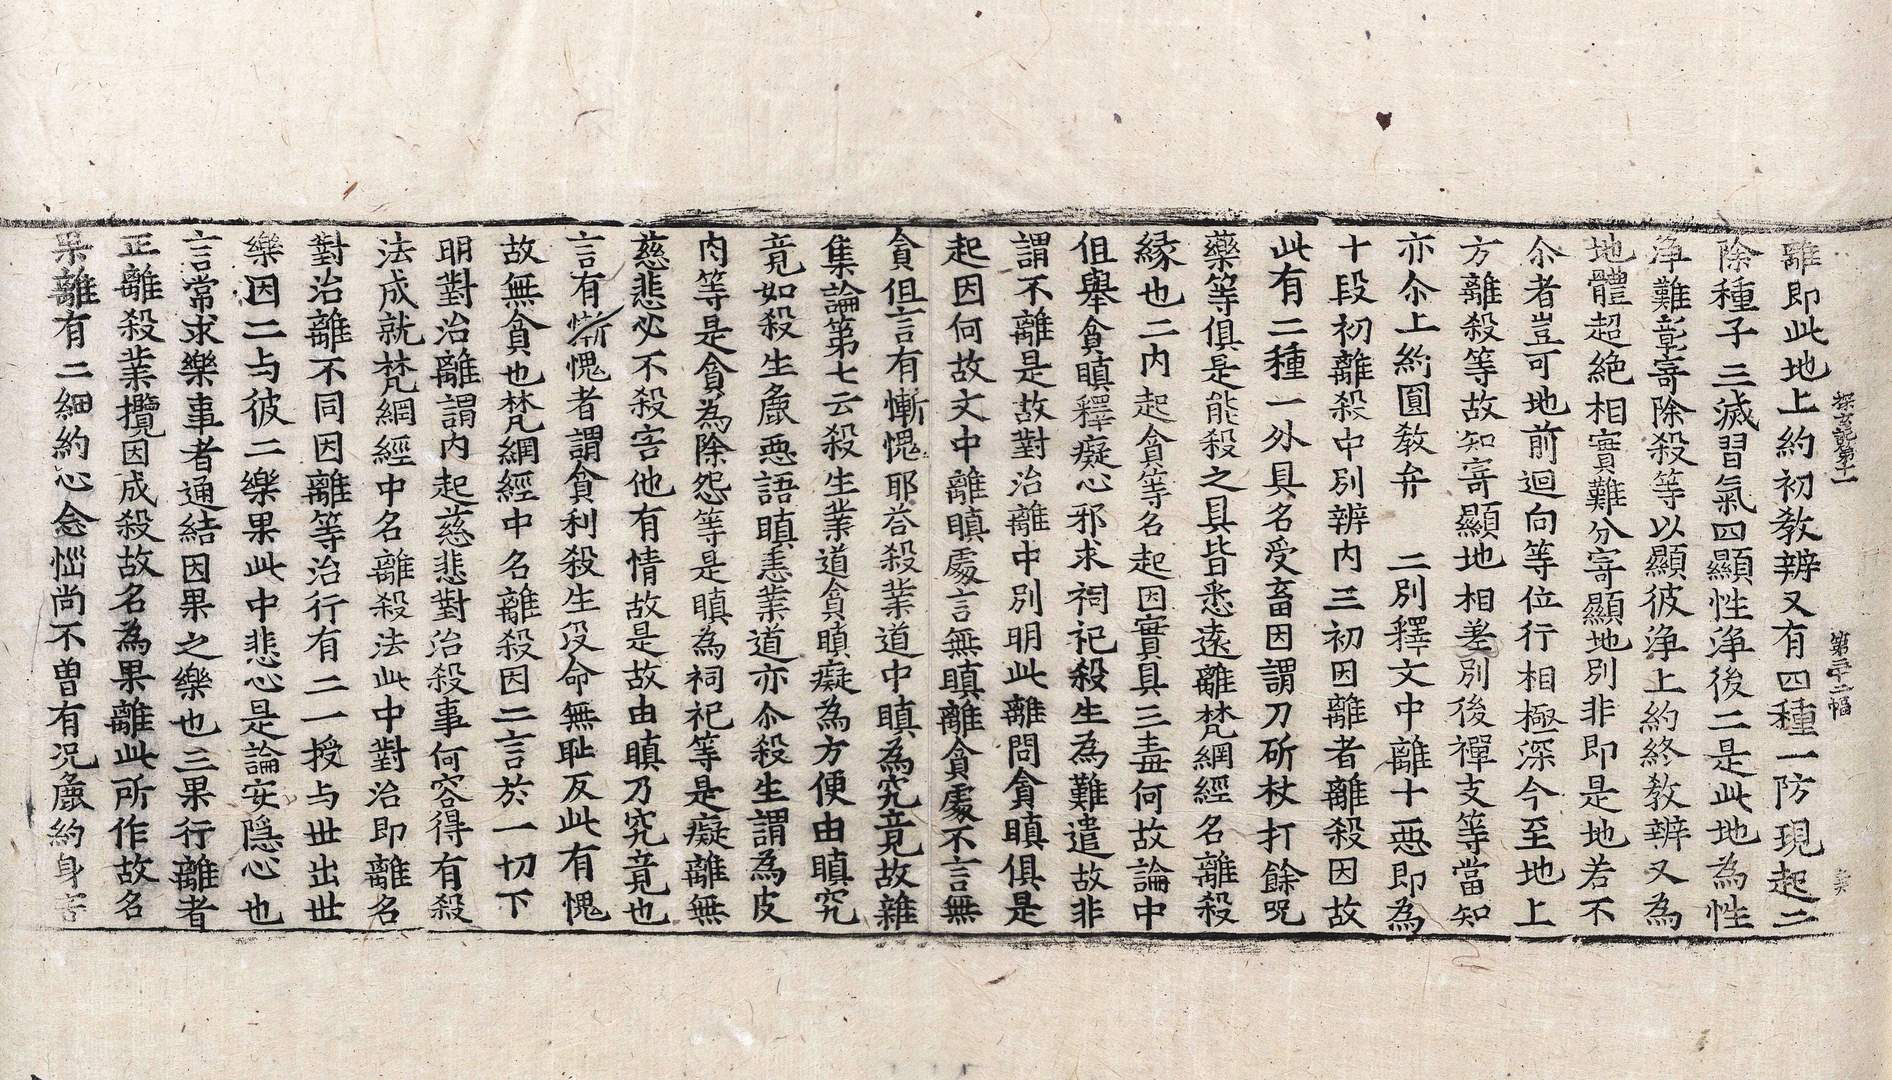 探玄記第十一　第三十二幅
離即此地上約初教辨又有四種一防現起二
除種子三滅習氣四顯性淨後二是此地為性
淨難彰寄除殺等以顯彼淨上約終教辨又為
地體超絶相實難分寄顯地別非即是地若不
尒者豈可地前迴向等位行相極深今至地上
方離殺等故知寄顯地相差別後禪支等當知
亦尒上約圓教弁　二別釋文中離十惡即為
十段初離殺中別辨内三初因離者離殺因故
此有二種一外具名受畜因謂刀斫杖打餘呪
藥等俱是能殺之具皆悉遠離梵網經名離殺
縁也二内起貪等名起因實具三毒何故論中
但舉貪瞋釋癡心邪求祠祀殺生為難遣故非
謂不離是故對治離中別明此離問貪瞋俱是
起因何故文中離瞋處言無瞋離貪處不言無
貪但言有慚愧耶荅殺業道中瞋為究竟故雜
集論第七云殺生業道貪瞋癡為方便由瞋究
竟如殺生麁惡語瞋恚業道亦尒殺生謂為皮
肉等是貪為除怨等是瞋為祠祀等是癡離無
慈悲必不殺害他有情故是故由瞋乃究竟也
言有慚愧者謂貪利殺生沒命無恥反此有愧
故無貪也梵網經中名離殺因二言於一切下
明對治離謂内起慈悲對治殺事何容得有殺
法成就梵網經中名離殺法此中對治即離名
對治離不同因離等治行有二一授与世出世
樂因二与彼二樂果此中悲心是論安隱心也
言常求樂事者通結因果之樂也三果行離者
正離殺業攬因成殺故名為果離此所作故名
果離有二細約心念惱尚不曽有況麁約身害